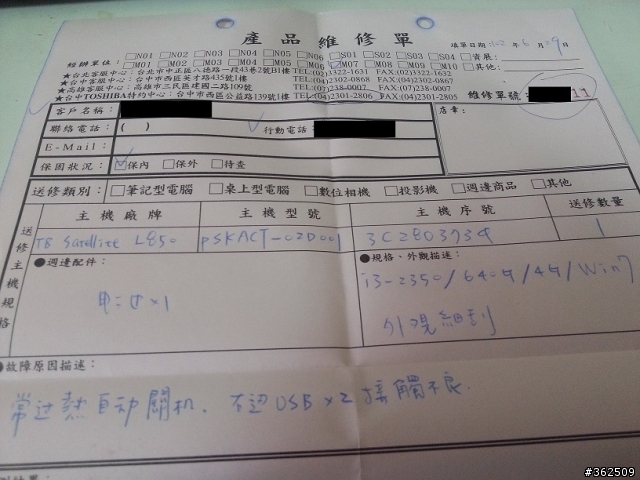 產品維修單
填單日期:102 年 6 月 29 日
經辦單位: □N01 □N02 □N03 □N04 □N05 □N06 □S01 □S02 □S03 □S04 □資展:
□M06 □M07 □M08 □M09 □M10 □其他:
★台北客服中心:台北市中正區八德路一段43巷2號B1樓 TEL:(02)3322-1631 FAX:(02)3322-1632
★台中客服中心:台中市西區英才路435號1樓 TEL:(04)2302-0868 FAX:(04)2302-0867
★高雄客服中心:高雄市三民區建國二路109號 TEL:(07)238-0007 FAX:(07)238-0007
★台中TOSHIBA特約中心:台中市西區向上路一段139號1樓 TEL:(04)2301-2806 FAX:(04)2301-2805
維修單號: 11
客戶名稱:
店章:
聯絡電話: ( ) 行動電話:
E-Mail:
保固狀況: ☑保內 □保外 □待查
送修類別: □筆記型電腦 □桌上型電腦 □數位相機 □投影機 □週邊商品 □其他
送修主機規格
主機廠牌 主機型號 主機序號 送修數量
TB Satellite L850 PSKACT-02D001 3C280373Q 1
●週邊配件: ●規格、外觀描述:
i3-2350/640G/4G/Win7
外觀細刮
●故障原因描述:
常过熱自动關机. 右边USB x2 接觸不良.
#362509